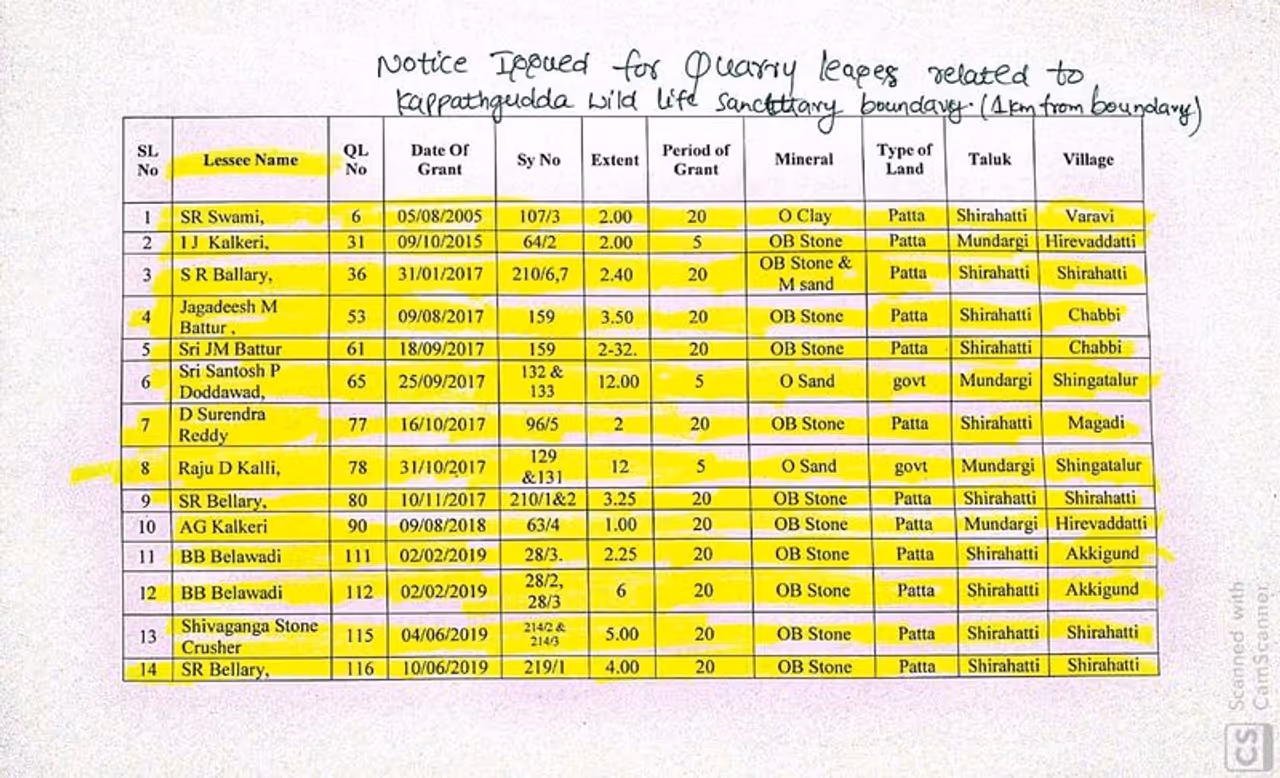 Notice Issued for Quarry leases related to
Kappathgudda wild life sancttuary boundary. (1km from boundary)
SL No | Lessee Name | QL No | Date Of Grant | Sy No | Extent | Period of Grant | Mineral | Type of Land | Taluk | Village
1 | SR Swami, | 6 | 05/08/2005 | 107/3 | 2.00 | 20 | O Clay | Patta | Shirahatti | Varavi
2 | I J Kalkeri, | 31 | 09/10/2015 | 64/2 | 2.00 | 5 | OB Stone | Patta | Mundargi | Hirevaddatti
3 | S R Ballary, | 36 | 31/01/2017 | 210/6,7 | 2.40 | 20 | OB Stone & M sand | Patta | Shirahatti | Shirahatti
4 | Jagadeesh M Battur , | 53 | 09/08/2017 | 159 | 3.50 | 20 | OB Stone | Patta | Shirahatti | Chabbi
5 | Sri JM Battur | 61 | 18/09/2017 | 159 | 2-32. | 20 | OB Stone | Patta | Shirahatti | Chabbi
6 | Sri Santosh P Doddawad, | 65 | 25/09/2017 | 132 & 133 | 12.00 | 5 | O Sand | govt | Mundargi | Shingatalur
7 | D Surendra Reddy | 77 | 16/10/2017 | 96/5 | 2 | 20 | OB Stone | Patta | Shirahatti | Magadi
8 | Raju D Kalli, | 78 | 31/10/2017 | 129 &131 | 12 | 5 | O Sand | govt | Mundargi | Shingatalur
9 | SR Bellary, | 80 | 10/11/2017 | 210/1&2 | 3.25 | 20 | OB Stone | Patta | Shirahatti | Shirahatti
10 | AG Kalkeri | 90 | 09/08/2018 | 63/4 | 1.00 | 20 | OB Stone | Patta | Mundargi | Hirevaddatti
11 | BB Belawadi | 111 | 02/02/2019 | 28/3. | 2.25 | 20 | OB Stone | Patta | Shirahatti | Akkigund
12 | BB Belawadi | 112 | 02/02/2019 | 28/2, 28/3 | 6 | 20 | OB Stone | Patta | Shirahatti | Akkigund
13 | Shivaganga Stone Crusher | 115 | 04/06/2019 | 214/2 & 214/3 | 5.00 | 20 | OB Stone | Patta | Shirahatti | Shirahatti
14 | SR Bellary, | 116 | 10/06/2019 | 219/1 | 4.00 | 20 | OB Stone | Patta | Shirahatti | Shirahatti
CS Scanned with
CamScanner